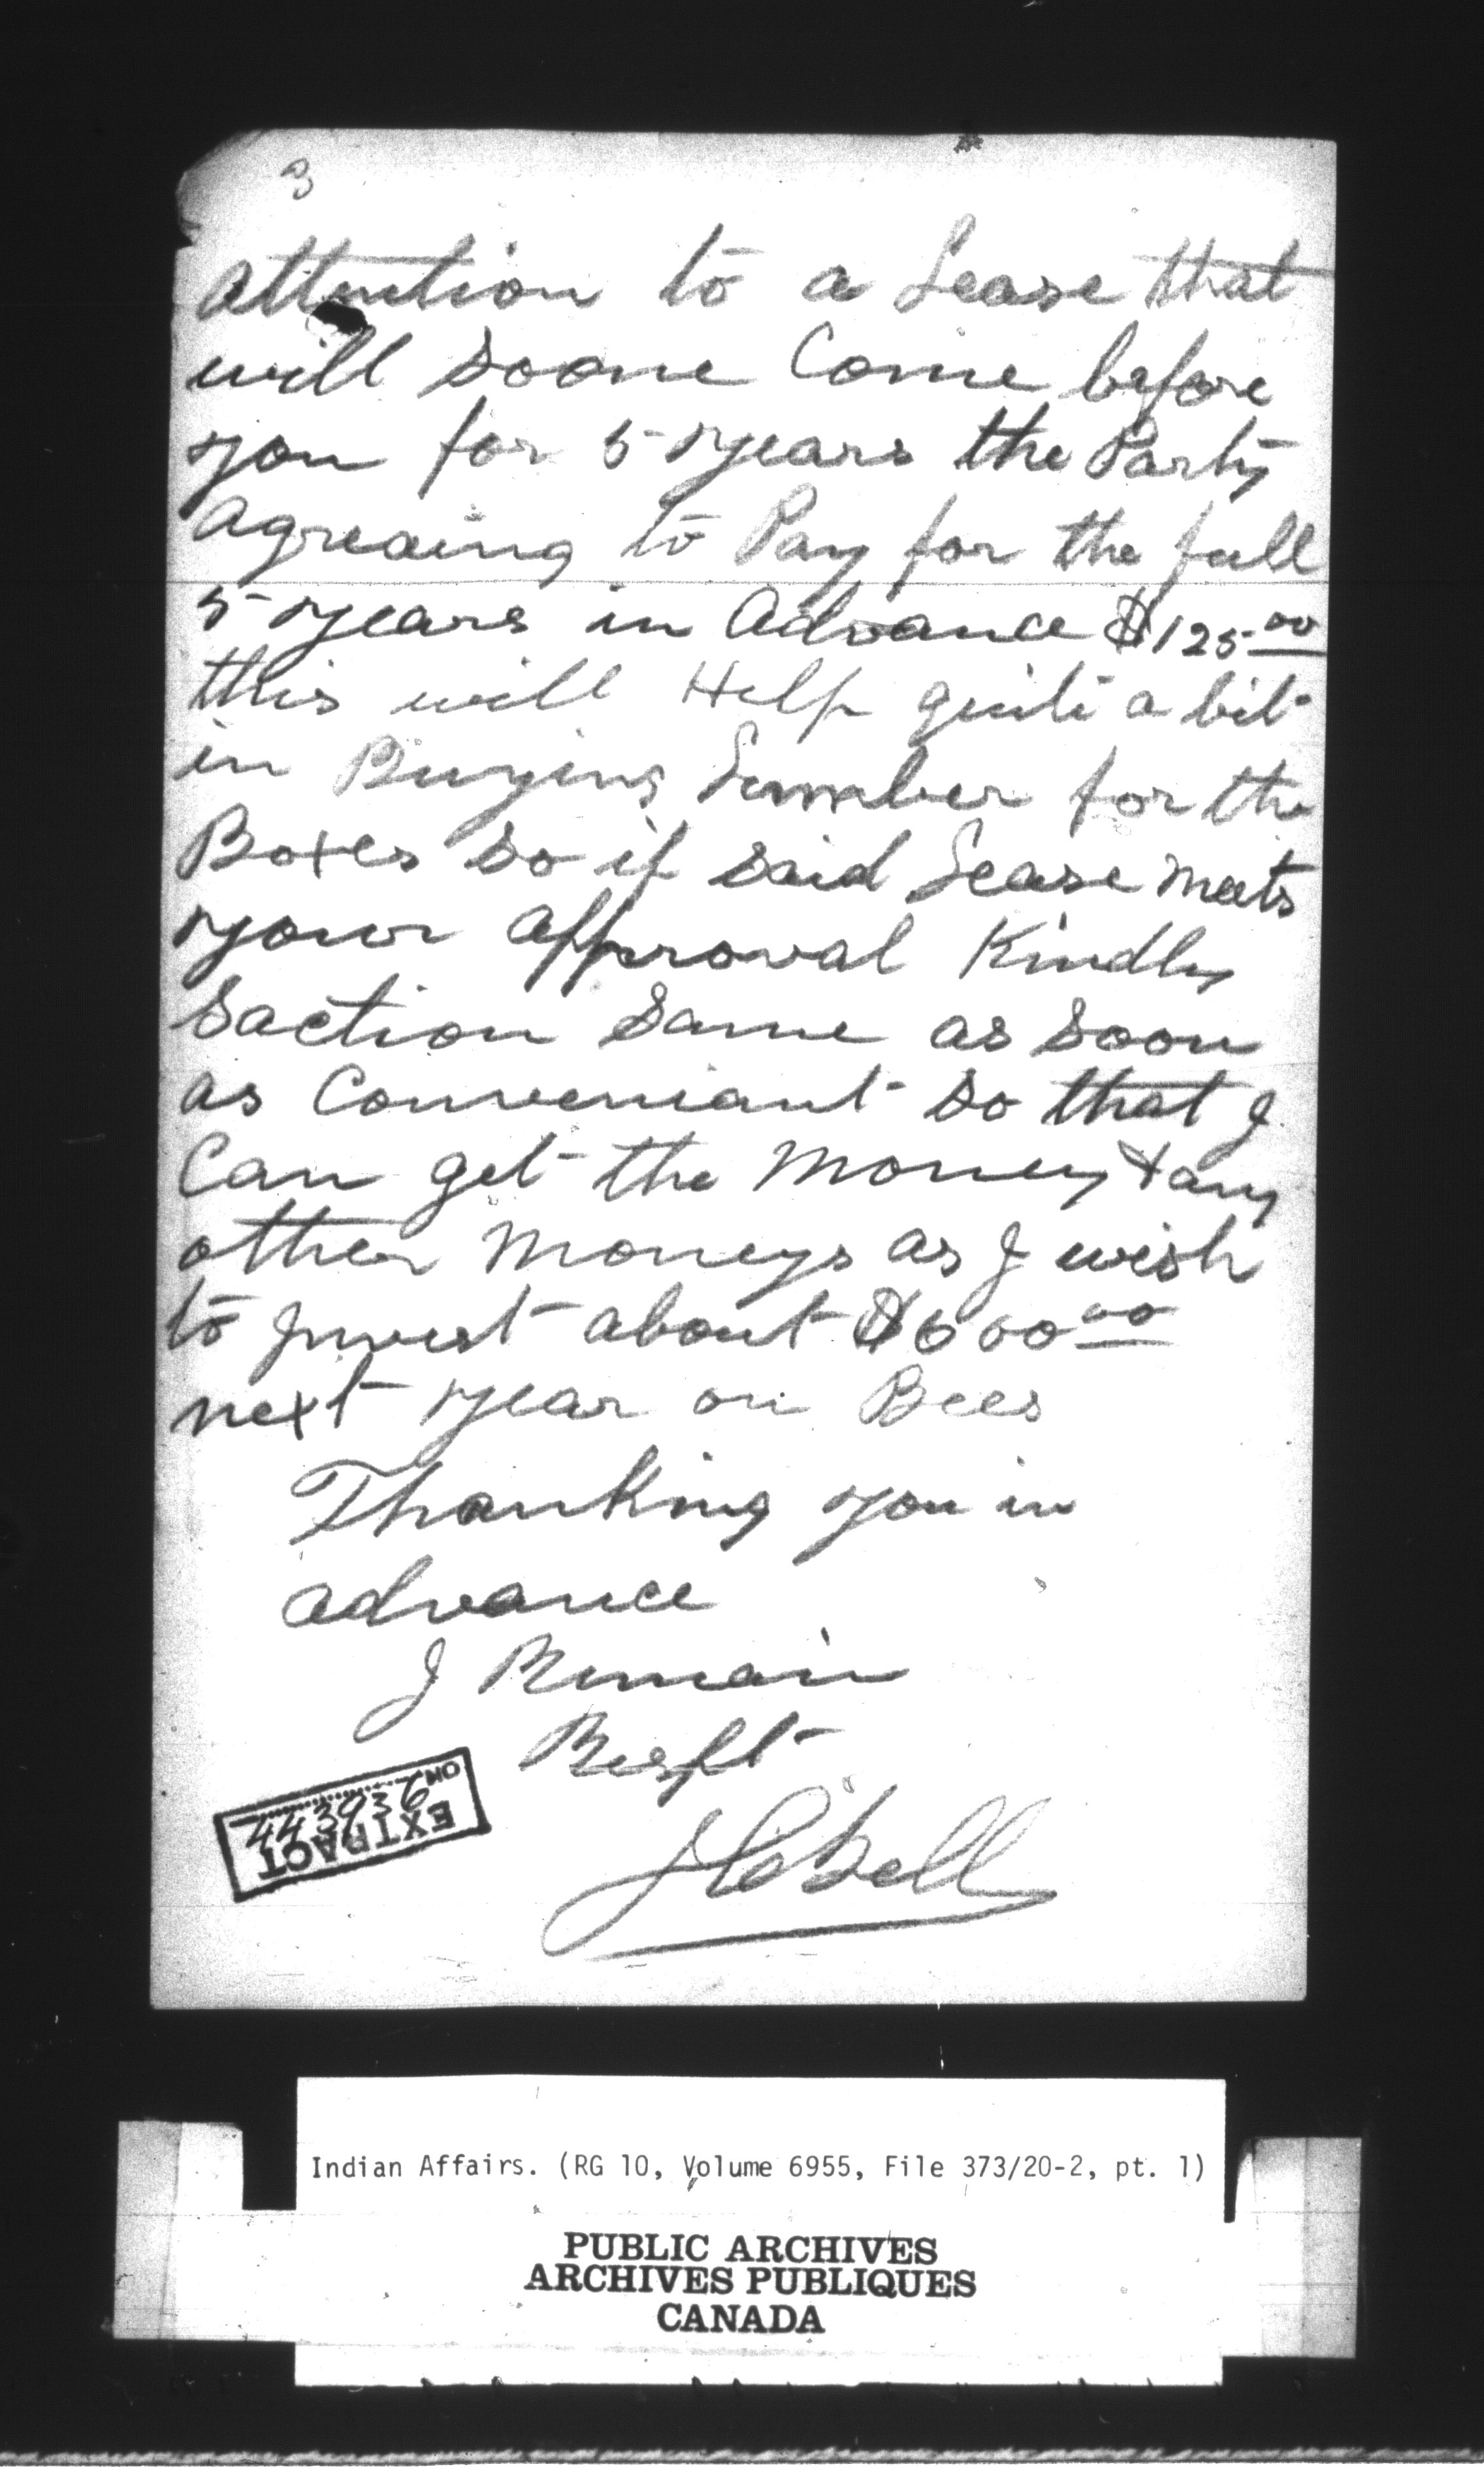 3
attention to a Lease that
will soone Come before
you for 5 years the Party
agreaing to Pay for the full
5 years in Advance $125.00
this will Help quite a bit
in Buying Lumber for the
Boxes so if said Lease meets
your approval Kindly
Saction Same as soon
as Conveniant so that I
Can get the Money & any
other Moneys as I wish
to Invest about $600.00
next year on Bees
Thanking you in
advance
I Remain
Respt
EXTRACT
443936
ON
Indian Affairs. (RG 10, Volume 6955, File 373/20-2, pt. 1)
PUBLIC ARCHIVES
ARCHIVES PUBLIQUES
CANADA